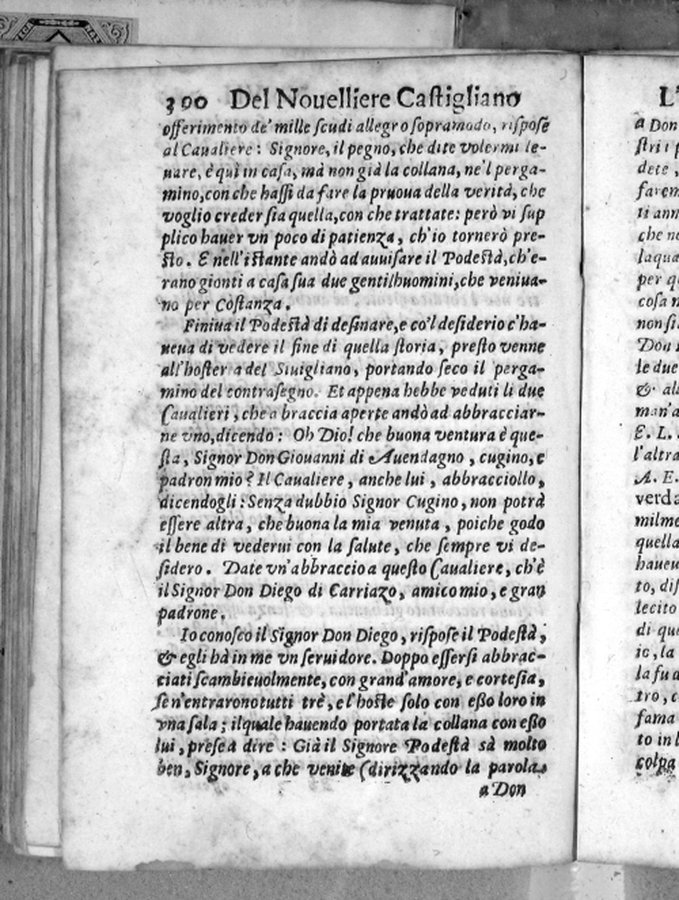 390 Del Nouelliere Castigliano
offerimento de' mille scudi allegro sopramodo, rispose
al Caualiere: Signore, il pegno, che dite volermi le-
uare, è quì in casa, mà non già la collana, ne'l perga-
mino, con che hassi da fare la pruoua della verità, che
voglio creder sia quella, con che trattate: però vi sup
plico hauer vn poco di patienza, ch'io tornerò pre-
sto. E nell'istante andò ad auuisare il Podestà, ch'e-
rano gionti a casa sua due gentilhuomini, che veniua-
no per Costanza.
Finiua il Podestà di desinare, e co'l desiderio c'ha-
ueua di vedere il fine di quella storia, presto venne
all'hosteria del Siuigliano, portando seco il perga-
mino del contrasegno. Et appena hebbe veduti li due
Caualieri, che a braccia aperte andò ad abbracciar-
ne vno, dicendo: Oh Dio! che buona ventura è que-
sta, Signor Don Giouanni di Auendagno, cugino, e
padron mio? Il Caualiere, anche lui, abbracciollo,
dicendogli: Senza dubbio Signor Cugino, non potrà
essere altra, che buona la mia venuta, poiche godo
il bene di vederui con la salute, che sempre vi de-
sidero. Date vn'abbraccio a questo Caualiere, ch'è
il Signor Don Diego di Carriazo, amico mio, e gran
padrone.
Io conosco il Signor Don Diego, rispose il Podestà,
& egli hà in me vn seruidore. Doppo essersi abbrac-
ciati scambieuolmente, con grand'amore, e cortesia,
se n'entrarono tutti trè, e l'hoste solo con esso loro in
vna sala; il quale hauendo portata la collana con esso
lui, prese à dire: Già il Signore Podestà sà molto
ben, Signore, a che venite (dirizzando la parola
a Don
L'
a Don
stri i p
dete,
farem
ti ann
che no
laqua
per q
cosa n
non si
Don
le due
& al
man'a
E. L.
l'altra
A. E.
verda
milme
quella
haueu
to, dis
lecito
di que
io, la
la fu a
tro, c
fama
to in l
colpa